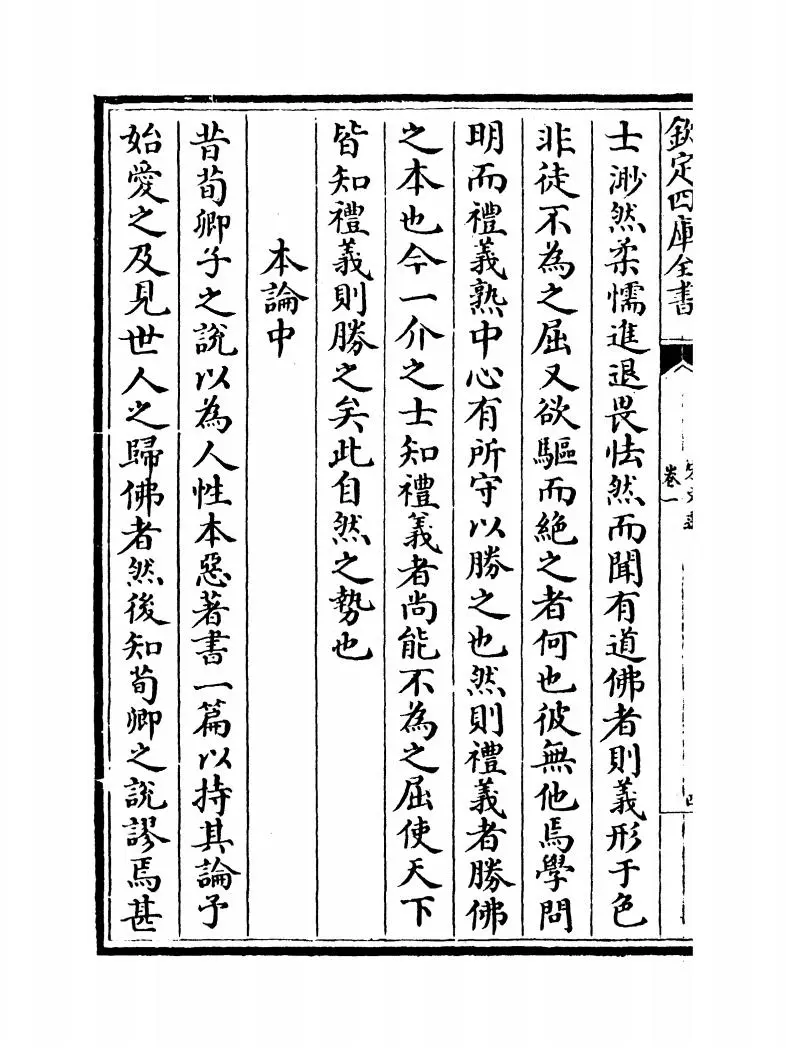 欽定四庫全書
卷一
士渺然柔懦進退畏怯然而聞有道佛者則義形于色
非徒不為之屈又欲驅而絶之者何也彼無他焉學問
明而禮義熟中心有所守以勝之也然則禮義者勝佛
之本也今一介之士知禮義者尚能不為之屈使天下
皆知禮義則勝之矣此自然之勢也
本論中
昔荀卿子之說以為人性本惡著書一篇以持其論予
始愛之及見世人之歸佛者然後知荀卿之說謬焉甚